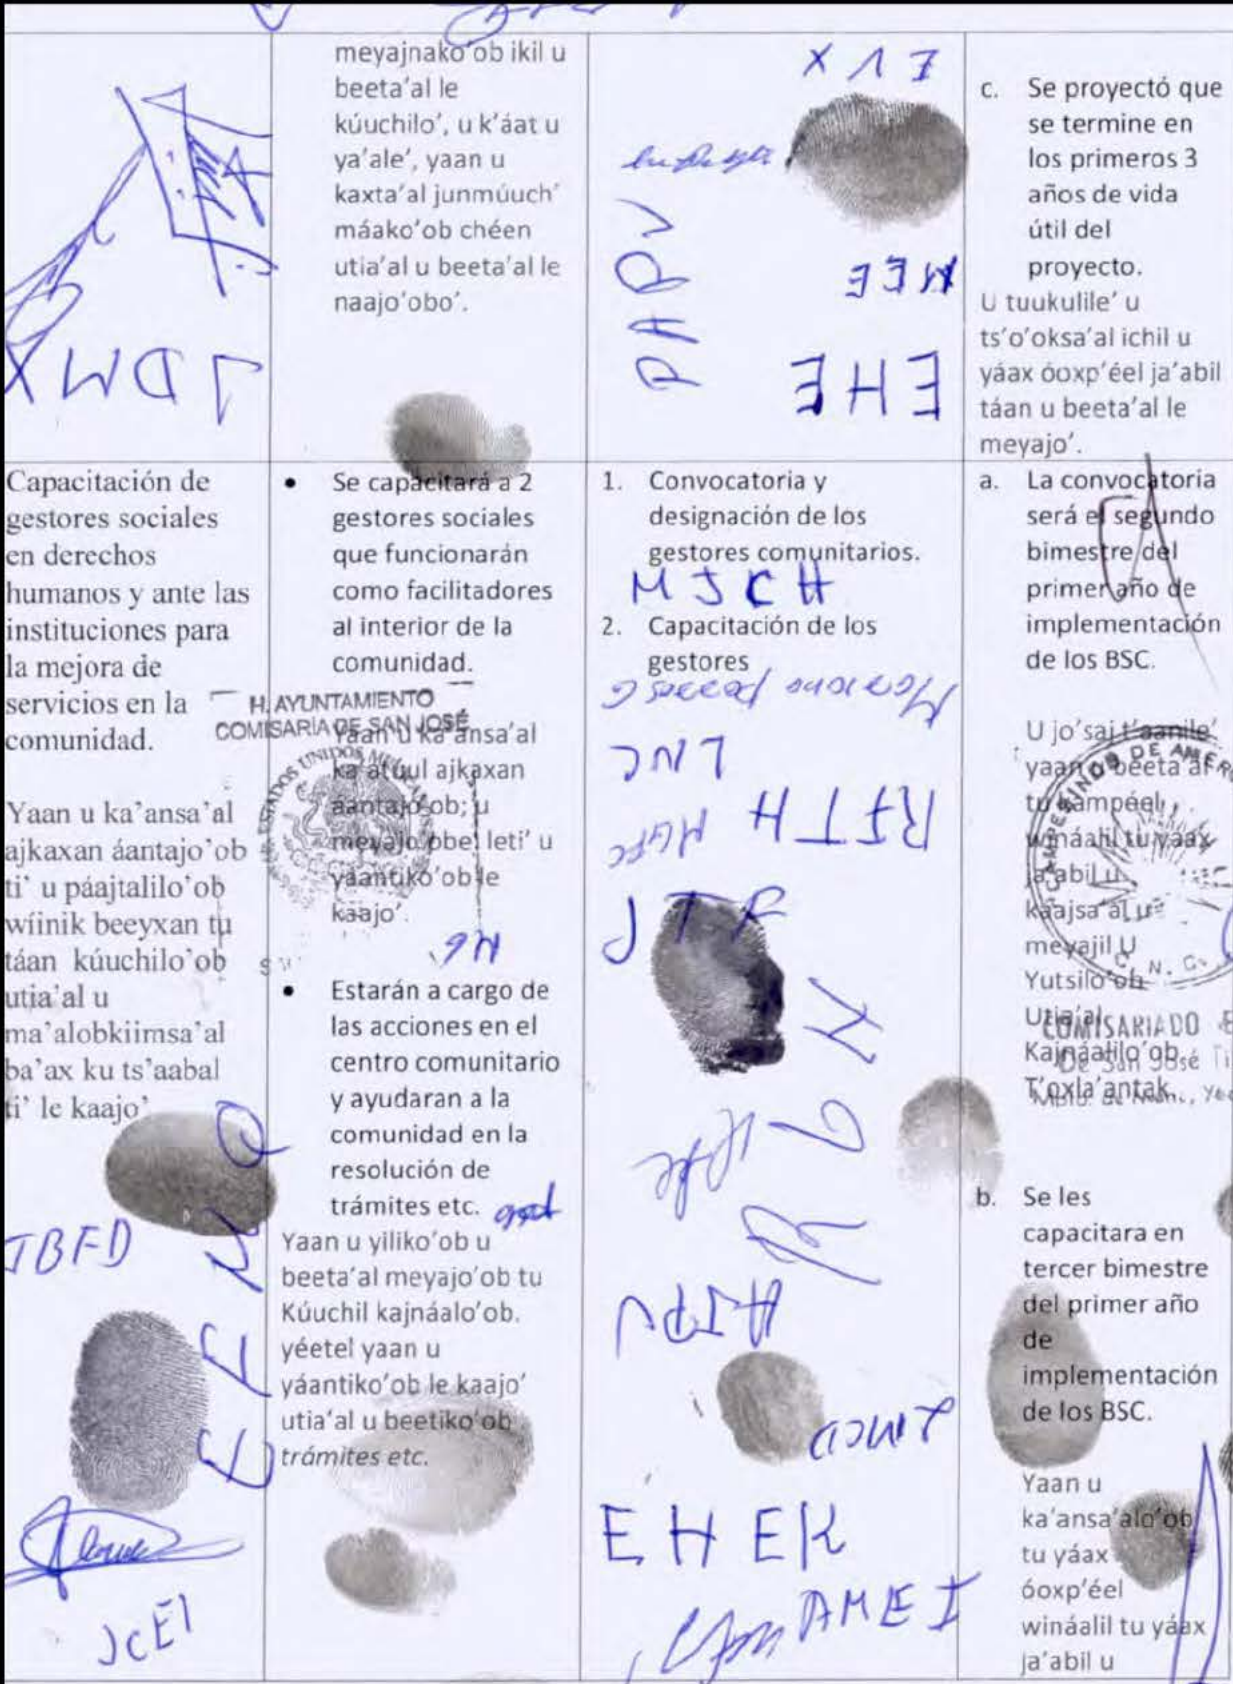 meyajnako'ob ikil u
beeta'al le
kúuchilo', u k'áat u
ya'ale', yaan u
kaxta'al junmúuch'
máako'ob chéen
utia'al u beeta'al le
naajo'obo'.
JDMX
EVX
PAPV
MEE
EHE
c. Se proyectó que
se termine en
los primeros 3
años de vida
útil del
proyecto.
U tuukulile' u
ts'o'oksa'al ichil u
yáax óoxp'éel ja'abil
táan u beeta'al le
meyajo'.
Capacitación de
gestores sociales
en derechos
humanos y ante las
instituciones para
la mejora de
servicios en la
comunidad.
Yaan u ka'ansa'al
ajkaxan áantajo'ob
ti' u páajtalilo'ob
wíinik beeyxan tu
táan kúuchilo'ob
utia'al u
ma'alobkiimsa'al
ba'ax ku ts'aabal
ti' le kaajo'
JBFD
JCEI
• Se capacitará a 2
gestores sociales
que funcionarán
como facilitadores
al interior de la
comunidad.
H. AYUNTAMIENTO
COMISARÍA DE SAN JOSÉ
Yaan u ka'ansa'al
ka'atúul ajkaxan
áantajo'ob; u
meyajo'obe' leti' u
yáantiko'ob le
kaajo'.
• Estarán a cargo de
las acciones en el
centro comunitario
y ayudaran a la
comunidad en la
resolución de
trámites etc.
Yaan u yiliko'ob u
beeta'al meyajo'ob tu
Kúuchil kajnáalo'ob.
yéetel yaan u
yáantiko'ob le kaajo'
utia'al u beetiko'ob
trámites etc.
1. Convocatoria y
designación de los
gestores comunitarios.
MJCH
2. Capacitación de los
gestores
LNC
RFTH
AJPU
EHEK
AMEI
a. La convocatoria
será el segundo
bimestre del
primer año de
implementación
de los BSC.
U jo'saj t'aanile'
yaan u beeta'al
tu kampéel
winaalil tu yáax
ja'abil u
kaajsa'al u
meyajil U
Yutsilo'ob
Utia'al
Kajnáalilo'ob
T'oxla'antak.
COMISARIADO
De San José
b. Se les
capacitara en
tercer bimestre
del primer año
de
implementación
de los BSC.
Yaan u
ka'ansa'alo'ob
tu yáax
óoxp'éel
wináalil tu yáax
ja'abil u